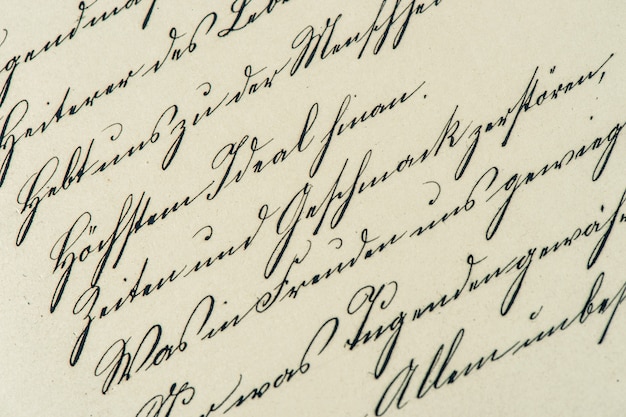 gendma
Heiterer des Lebe
Hebt uns zu der Menschhei
Höchstem Ideal hinan.
Zeiten und Geschmack zerstören,
Was in Freuden uns gewieg
was Tugenden gewäh
Allem unbe